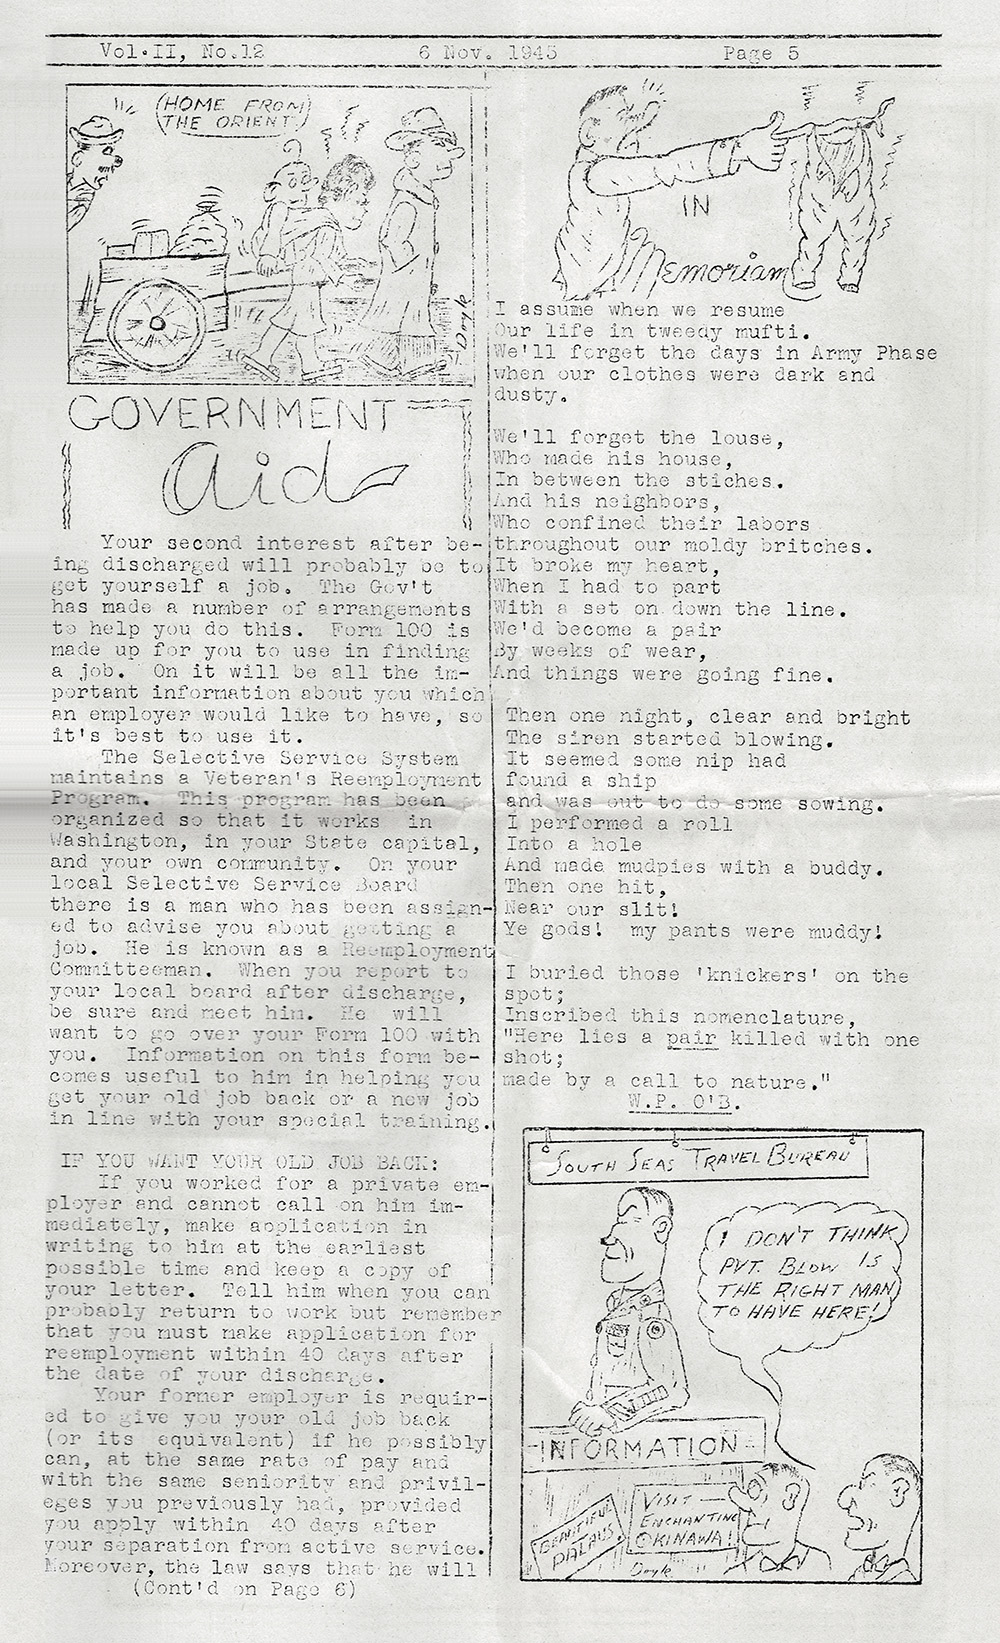 Vol.II, No.12   6 Nov. 1945   Page 5
(HOME FROM
THE ORIENT.)
Doyle
GOVERNMENT
Aid
Your second interest after be-
ing discharged will probably be to
get yourself a job. The Gov't
has made a number of arrangements
to help you do this. Form 100 is
made up for you to use in finding
a job. On it will be all the im-
portant information about you which
an employer would like to have, so
it's best to use it.
The Selective Service System
maintains a Veteran's Reemployment
Program. This program has been
organized so that it works in
Washington, in your State capital,
and your own community. On your
local Selective Service Board
there is a man who has been assign-
ed to advise you about getting a
job. He is known as a Reemployment
Committeeman. When you report to
your local board after discharge,
be sure and meet him. He will
want to go over your Form 100 with
you. Information on this form be-
comes useful to him in helping you
get your old job back or a new job
in line with your special training.
IF YOU WANT YOUR OLD JOB BACK:
If you worked for a private em-
ployer and cannot call on him im-
mediately, make application in
writing to him at the earliest
possible time and keep a copy of
your letter. Tell him when you can
probably return to work but remember
that you must make application for
reemployment within 40 days after
the date of your discharge.
Your former employer is requir-
ed to give you your old job back
(or its equivalent) if he possibly
can, at the same rate of pay and
with the same seniority and privil-
eges you previously had, provided
you apply within 40 days after
your separation from active service.
Moreover, the law says that he will
(Cont'd on Page 6)
IN
Memoriam
I assume when we resume
Our life in tweedy mufti.
We'll forget the days in Army Phase
when our clothes were dark and
dusty.
We'll forget the louse,
Who made his house,
In between the stiches.
And his neighbors,
Who confined their labors
throughout our moldy britches.
It broke my heart,
When I had to part
With a set on down the line.
We'd become a pair
By weeks of wear,
And things were going fine.
Then one night, clear and bright
The siren started blowing.
It seemed some nip had
found a ship
and was out to do some sowing.
I performed a roll
Into a hole
And made mudpies with a buddy.
Then one hit,
Near our slit!
Ye gods! my pants were muddy!
I buried those 'knickers' on the
spot;
Inscribed this nomenclature,
"Here lies a pair killed with one
shot;
made by a call to nature."
W.P. O'B.
SOUTH SEAS TRAVEL BUREAU
I DON'T THINK
PVT. BLOW IS
THE RIGHT MAN
TO HAVE HERE!
INFORMATION
BEAUTIFUL
PALAUS!
VISIT
ENCHANTING
OKINAWA!
Doyle